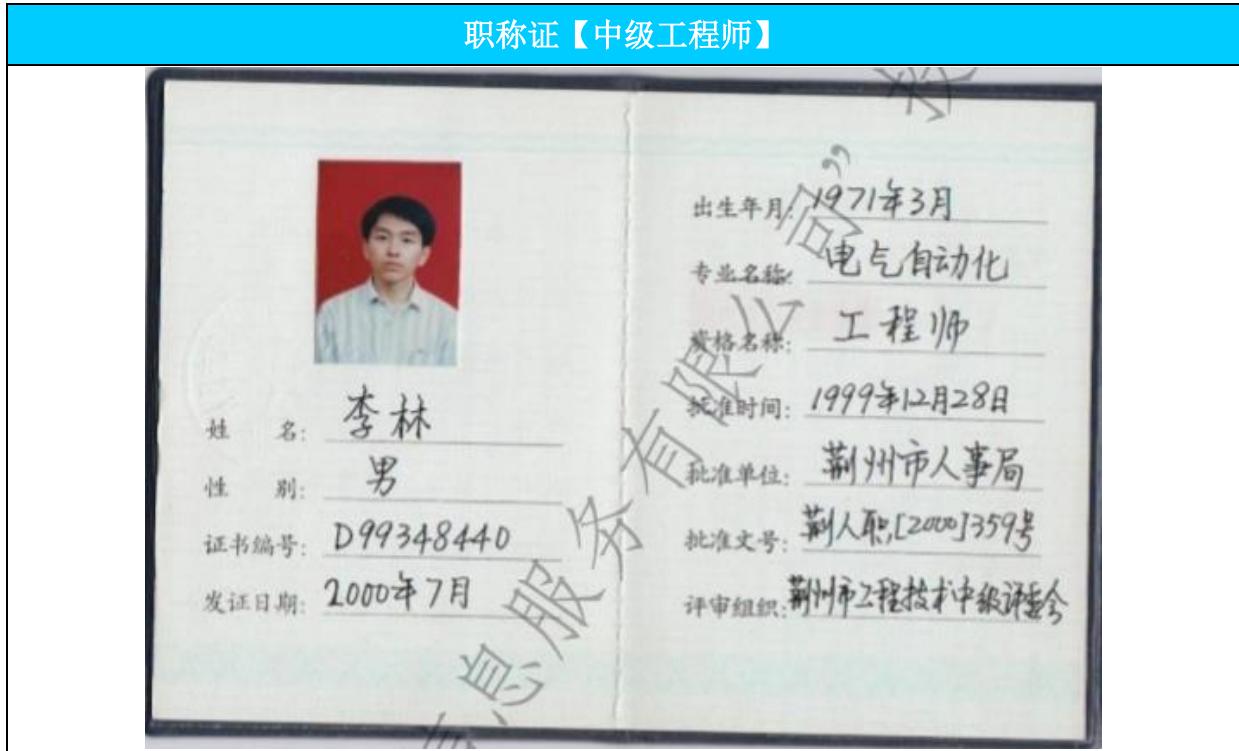 职称证【中级工程师】
姓 名: 李林
性 别: 男
证书编号: D99348440
发证日期: 2000年7月
出生年月: 1971年3月
专业名称: 电气自动化
资格名称: 工程师
批准时间: 1999年12月28日
批准单位: 荆州市人事局
批准文号: 荆人职[2000]359号
评审组织: 荆州市工程技术中级评委会
息服务有限公司”